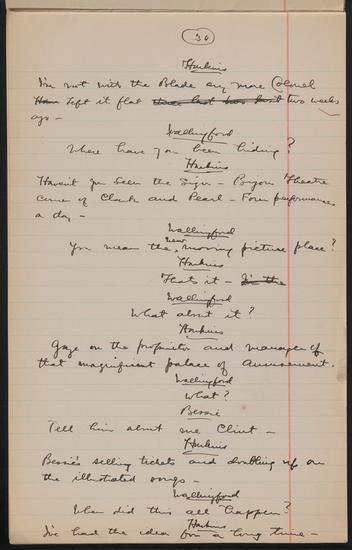 30
Harkins
I'm not with the Blade any more Colonel
Left it flat two weeks
ago –
Wallingford
Where have you been hiding?
Harkins
Haven't you seen the Sign – Bijou Theatre
corner of Clark and Pearl – Four performances
a day –
Wallingford
You mean the new moving picture place?
Harkins
That's it – In the
Wallingford
What about it?
Harkins
Gaze on the proprietor and manager of
that magnificent palace of Amusement.
Wallingford
What?
Bessie
Tell him about me Clint –
Harkins
Bessie's selling tickets and doubling up on
the illustrated songs –
Wallingford
When did this all happen?
Harkins
I've had the idea for a long time –